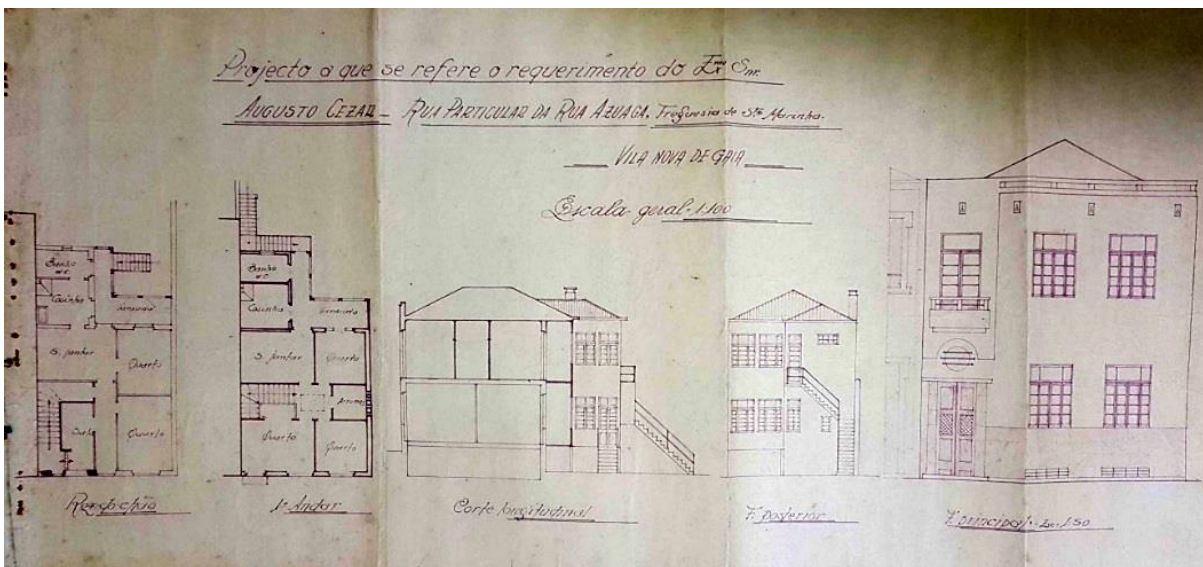 Projecto a que se refere o requerimento do Exmo Snr.
AUGUSTO CEZAR - RUA PARTICULAR DA RUA AZUAGA, Freguesia de Sta Marinha.
VILA NOVA DE GAIA
Escala geral - 1:100
Banho
W.C.
Cosinha
S. jantar
Quarto
Quarto
Rez do chão
Banho
W.C.
Cosinha
S. jantar
Quarto
Quarto
Quarto
1º Andar
Corte longitudinal
F. posterior
F. principal - Esc. 1:50